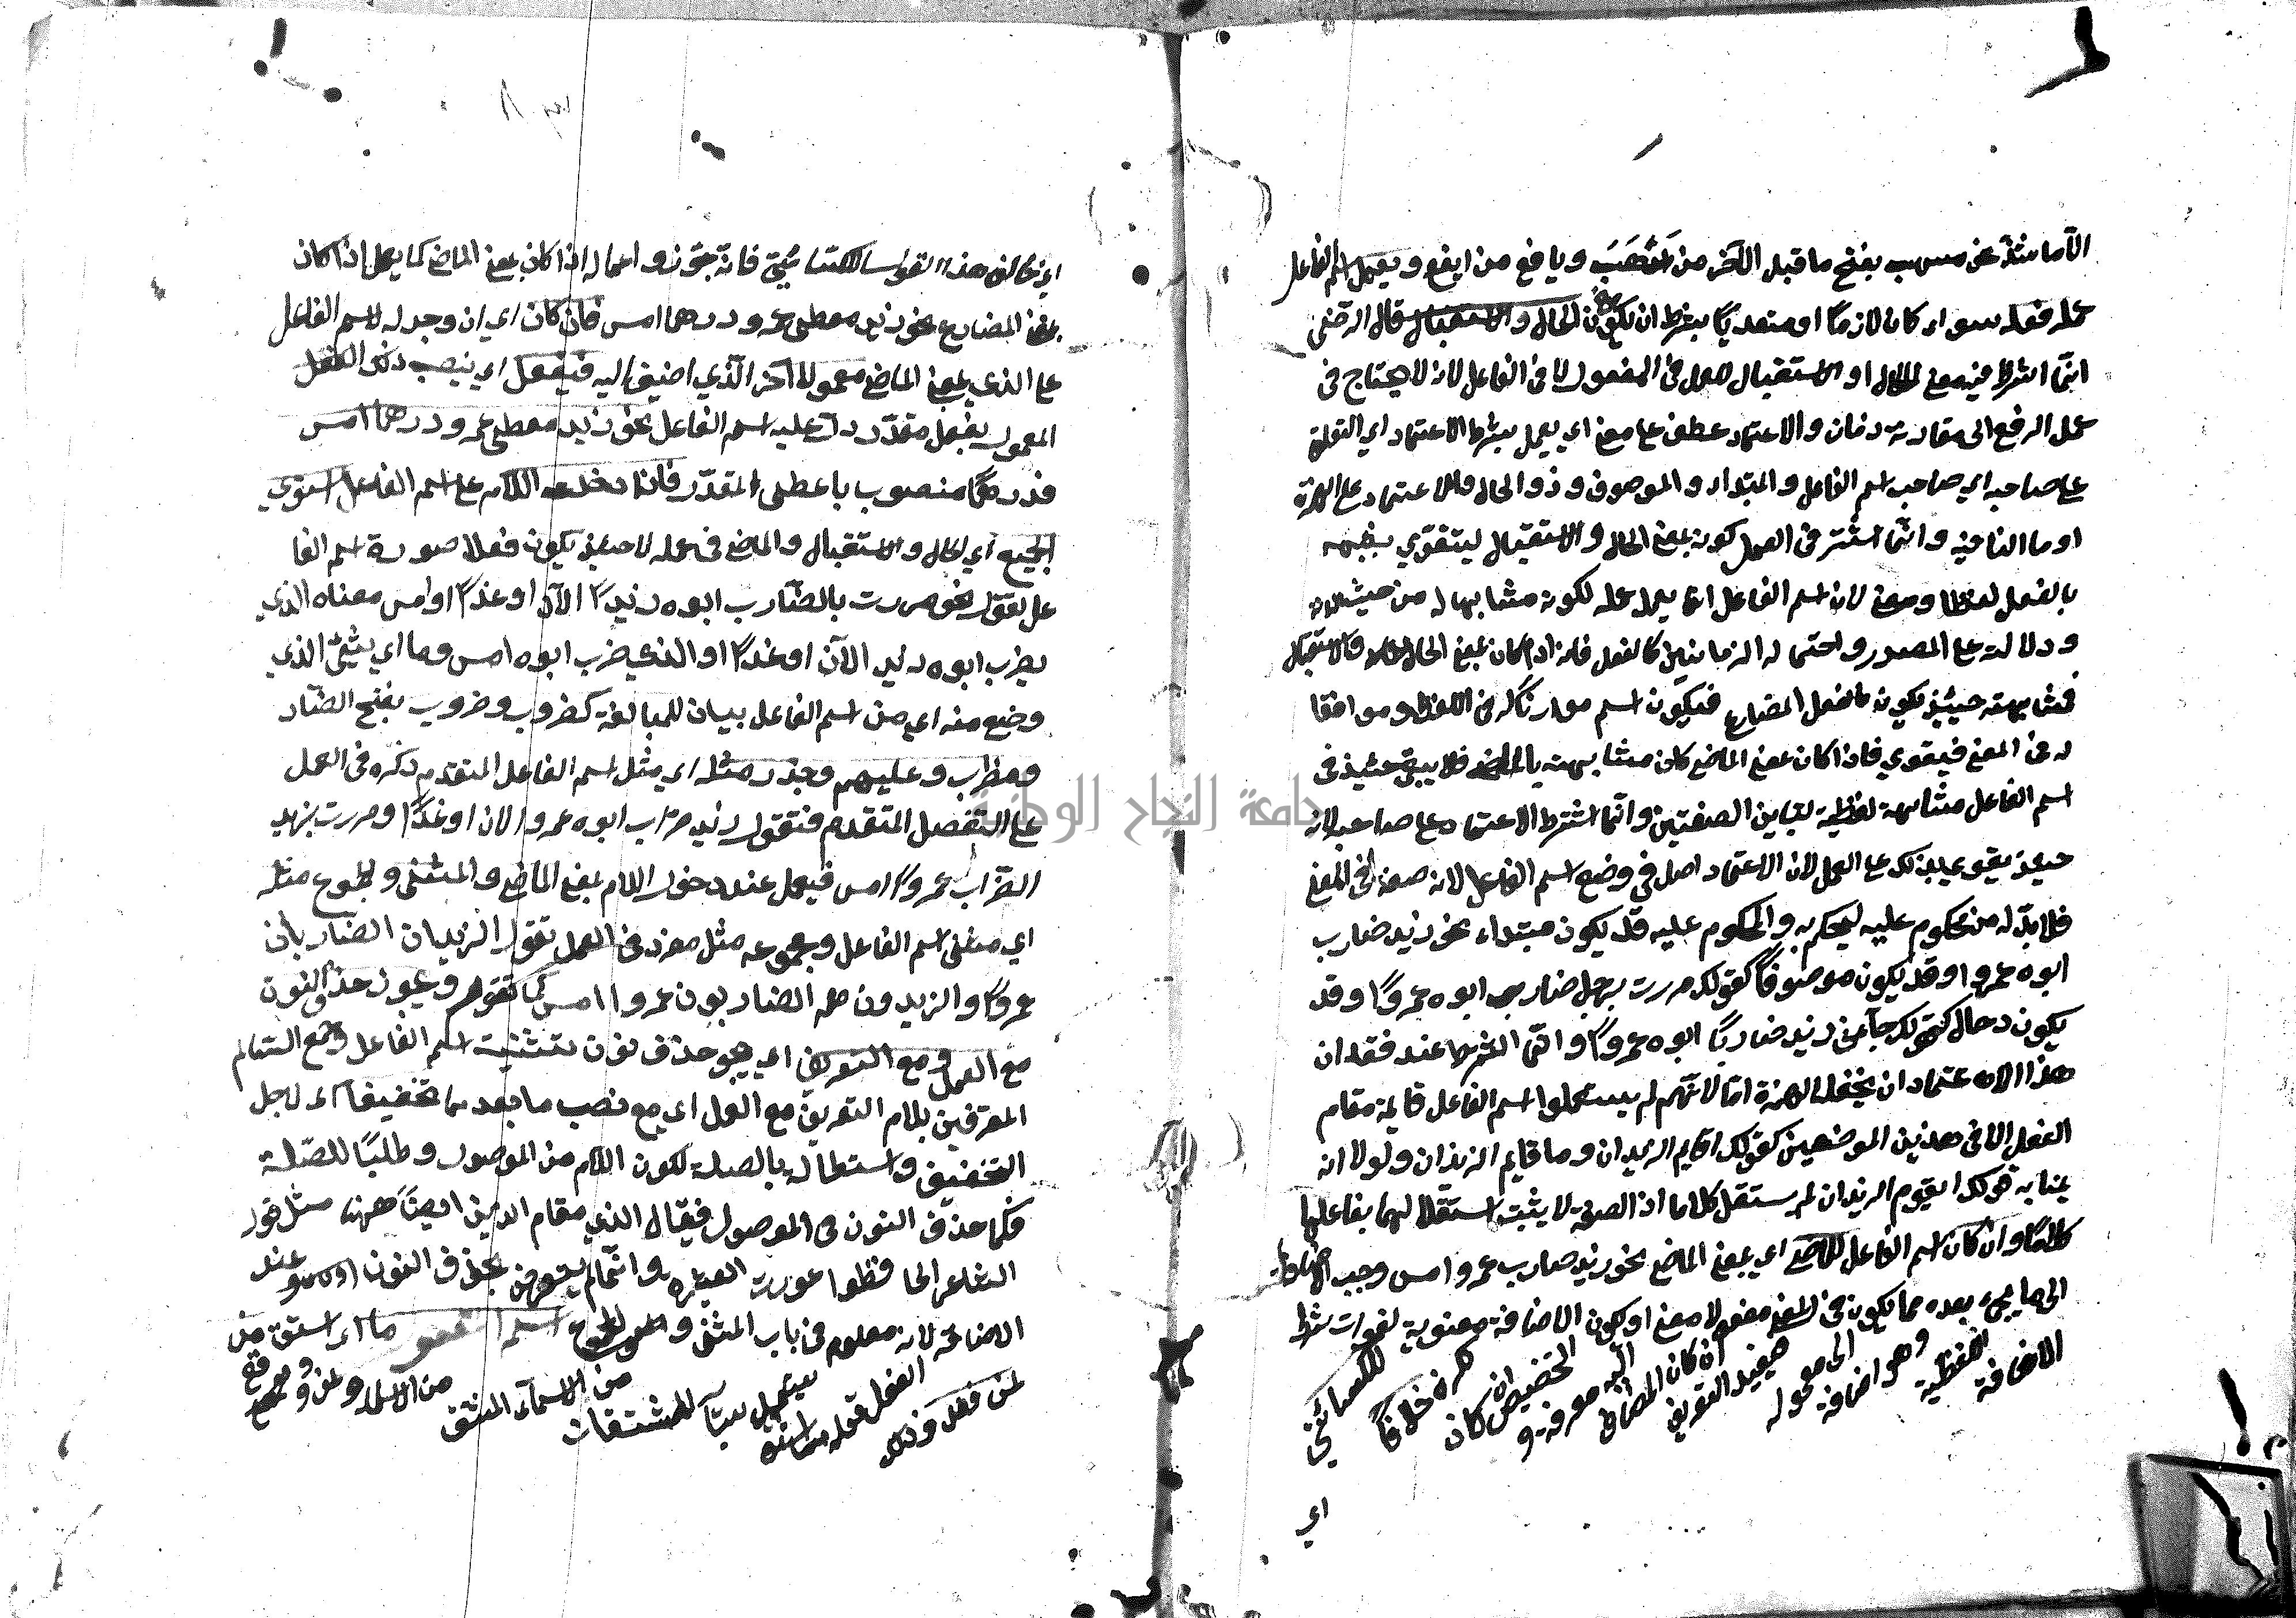 الا ما شذ نحو مسهب بفتح ما قبل الآخر من اسهب ويافع من ايفع ويعمل اسم الفاعل
عمل فعله سواء كان لازمًا او متعديًا بشرط ان يكون الحال والاستقبال قال الرضي
انما اشترط فيه معنى الحال او الاستقبال للعمل في المفعول لا في الفاعل لانه لا يحتاج في
عمل الرفع الى مقارنة زمان والاعتماد عطف على معنى اي يعمل بشرط الاعتماد اي
على صاحبه اي صاحب اسم الفاعل والمبتداء والموصوف وذو الحال والاعتماد على الهمزة
او ما النافية وانما اشترط في العمل كونه بمعنى الحال والاستقبال ليتقوي شبهه
بالفعل لفظا ومعنى لان اسم الفاعل انما يعمل عمله لكونه مشابها له من حيث
ودلالته على المصدر واحتماله الزمانين كالفعل فانه اذا كان بمعنى الحال والاستقبال
فمشابهته حينئذ يكون بالفعل المضارع فيكون اسم موازنًا له في اللفظ وموافقا
له في المعنى فيقوي فاذا كان بمعنى الماضي كان مشابهته بالماضي فلا يبقى حينئذ في
اسم الفاعل مشابهة لفظية لتباين الصفتين وانما اشترط الاعتماد على صاحبه لانه
حينئذ يقوي بذلك على العمل لان الاعتماد اصل في وضع اسم الفاعل لانه صفة في المعنى
فلا بد له من محكوم عليه ليحكم به والمحكوم عليه قد يكون مبتداء نحو زيد ضارب
ابوه عمروا وقد يكون موصوفًا كقولك مررت برجل ضارب ابوه عمروًا وقد
يكون ذحال كقولك جآءني زيد ضاربًا ابوه عمروًا وانما اشترط عند فقدان
هذا الاعتماد ان الهمزة اما لانهم لم يستعملوا اسم الفاعل قايمة مقام
الفعل الا في هذين الموضعين كقولك اقايم الزيدان وما قايم الزيدان ولولا انه
بمثابة قولك ايقوم الزيدان لم يستقل كلاما اذ الصفة لا يثبت استقلالها بفاعلها
كلامًا وان كان اسم الفاعل للماضي اي بمعنى الماضي نحو زيد ضارب عمرو امس وجب الاضافة
الى ما يجيء بعده مما يكون في المعنى مفعولا معنى او يكون الاضافة معنوية لفوات شرط
الاضافة لفظية وهو اضافة الى معموله فيفيد التعريف ان كان المضاف اليه معرفة و التخصيص ان كان نكرة خلافًا للكسائي
اي
اي خالف هذه القول الكسائي فانه جوز واعماله اذا كان بمعنى الماضي كما يعمل اذا كان
بمعنى المضارع نحو زيد معطي عمرو درهما امس فان كان اي ان وجد له لاسم الفاعل
على الذي بمعنى الماضي معمولا آخر الذي اضيف اليه فبفعل اي ينصب ذلك
المعمول بفعل مقدر دل عليه اسم الفاعل نحو زيد معطي عمرو درهما امس
فدرهمًا منصوب باعطى المقدر فاذا دخلت اللام على اسم الفاعل استوي
الجميع اي الحال والاستقبال والماضي في عمله لا حينئذ يكون فعلا صورة اسم الفا
عل تقول نحو مررت بالضارب ابوه زيدًا الآن او غدًا او امس معناه الذي
يضرب ابوه زيد الآن او غدًا او الذي ضرب ابوه امس وما اي شيئ الذي
وضع منه اي من اسم الفاعل بيان للمبالغة كضروب وضروب بفتح الضاد
ومضراب وعليم وحذر مثله اي مثل اسم الفاعل المتقدم ذكره في العمل
على التفصل المتقدم فتقول زيد ضراب ابوه عمروا الان او غدًا ومررت بزيد
الضراب عمروًا امس فيعمل عند دخول اللام بمعنى الماضي والمثنى والمجموع مثله
اي مثنى اسم الفاعل ومجموعه مثل مفرد في العمل تقول الزيدان الضاربان
عمروًا والزيدون هم الضاربون عمروا امس كما تقول ويجوز حذف النون
مع العمل ومع التعريف اي يجوز حذف نون تثنيت اسم الفاعل وجمع السالم
المعرفين بلام التعريف مع العمل اي مع نصب ما بعدهما تخفيفا اي لاجل
التخفيف واستطالة بالصلة لكون اللام من الموصول وطلبًا للصلة
فكما حذف النون في الموصول فيقال الذي مقام الذين ايضًا ههنا مثل قول
الشاعر الحافظوا عورت العشيرة وانما لم بحذف النون عند
الاضافة لانه معلوم في باب المثنى والمجموع اسم المفعول ما اي اشتق من
الفعل من الاسمآء